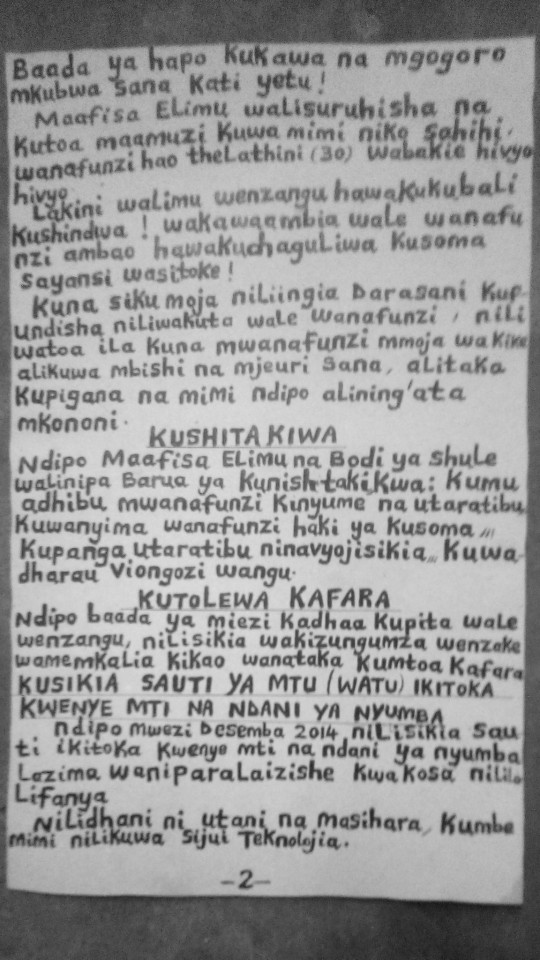 Baada ya hapo kukawa na mgogoro
mkubwa sana kati yetu!
Maafisa Elimu walisuruhisha na
kutoa maamuzi kuwa mimi niko sahihi.
wanafunzi hao thelathini (30) wabakie hivyo
hivyo
Lakini walimu wenzangu hawakukubali
kushindwa! wakawaambia wale wanafu
nzi ambao hawakuchaguliwa kusoma
Sayansi wasitoke!
Kuna siku moja niliingia Darasani kuf-
undisha niliwakuta wale wanafunzi, nili
watoa ila kuna mwanafunzi mmoja wakike
alikuwa mbishi na mjeuri sana, alitaka
kupigana na mimi ndipo alining'ata
mkononi.
KUSHITAKIWA
Ndipo Maafisa Elimu na Bodi ya shule
walinipa Barua ya kunishtaki kwa: kumu
adhibu mwanafunzi kinyume na utaratibu
kuwanyima wanafunzi haki ya kusoma ,,,
kupanga utaratibu ninavyojisikia,, kuwa-
dharau viongozi wangu.
KUTOLEWA KAFARA
Ndipo baada ya miezi kadhaa kupita wale
wenzangu, nilisikia wakizungumza wenzake
wamemkalia kikao wanataka kumtoa kafara
KUSIKIA SAUTI YA MTU (WATU) IKITOKA
KWENYE MTI NA NDANI YA NYUMBA
ndipo mwezi Desemba 2014 nilisikia sau
ti ikitoka kwenye mti na ndani ya nyumba
Lazima waniparalaizishe kwa kosa nililo
Lifanya
Nilidhani ni utani na masihara,, kumbe
mimi nilikuwa sijui Teknolojia.
-2-